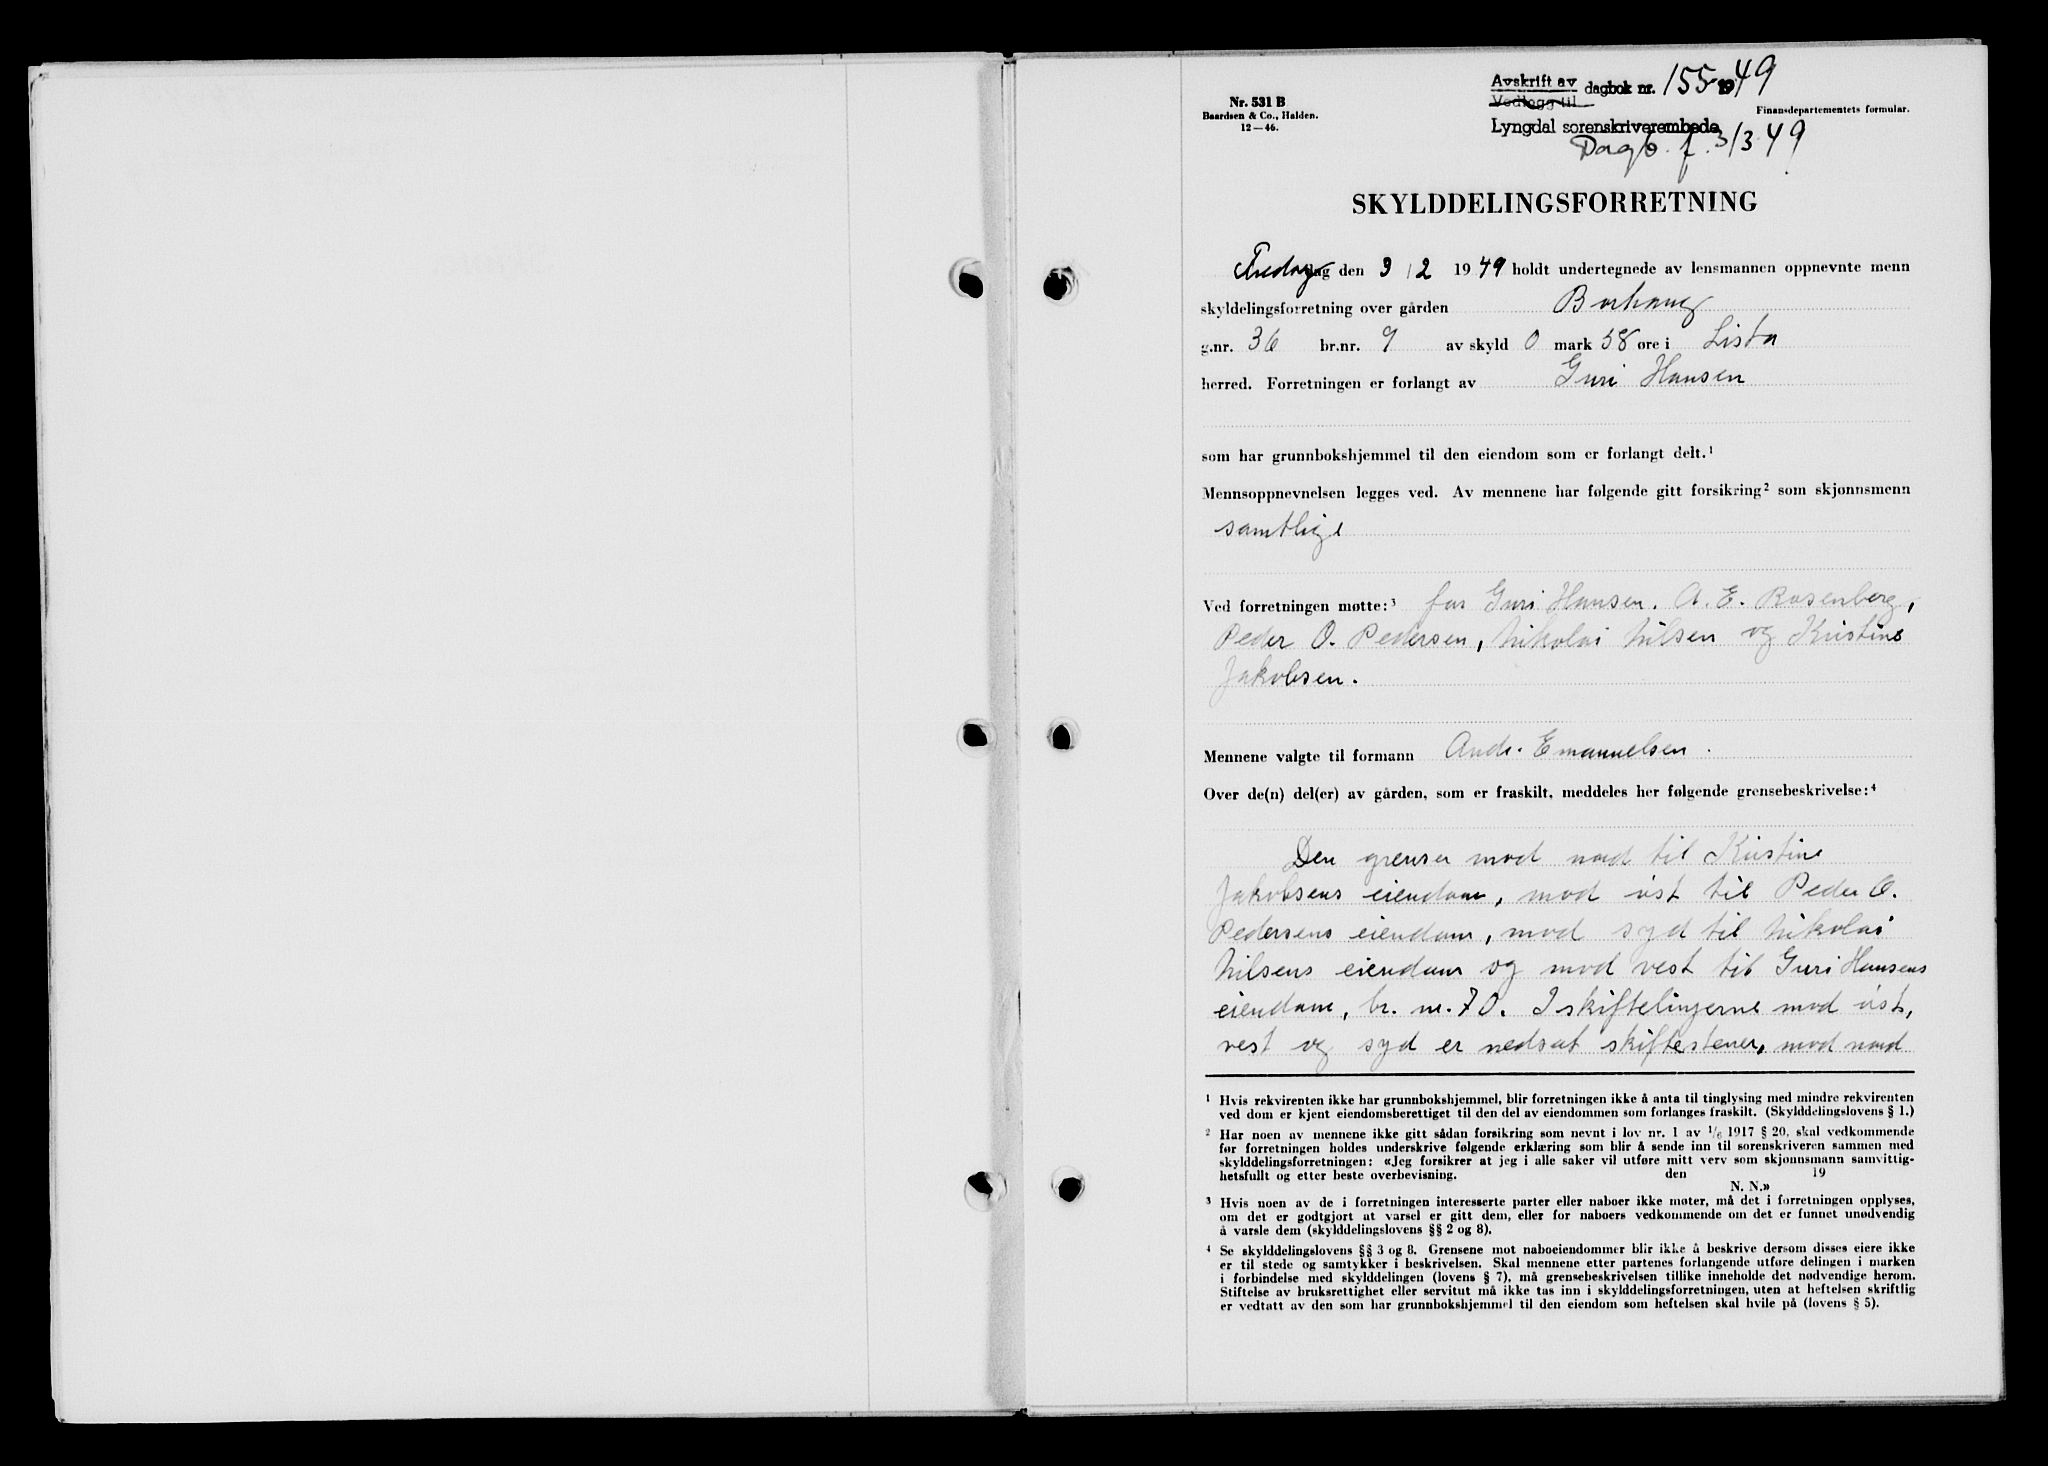 Avskrift av dagbok nr. 155 1949
Vedlegg til
Lyngdal sorenskriverembede
Dagb. f. 3/3 49
Nr. 531 B
Baardsen & Co., Halden.
12—46.
Finansdepartementets formular.
SKYLDDELINGSFORRETNING
dag den 9/2 1949 holdt undertegnede av lensmannen oppnevnte menn
skyldelingsforretning over gården Borhaug
g.nr. 36 br.nr. 9 av skyld 0 mark 58 øre i Lista
herred. Forretningen er forlangt av Guri Hansen
som har grunnbokshjemmel til den eiendom som er forlangt delt.¹
Mennsoppnevnelsen legges ved. Av mennene har følgende gitt forsikring² som skjønnsmenn
samtlige
Ved forretningen møtte:³ for Guri Hansen. A. E. Rosenberg,
Peder O. Pedersen, Nikolai Nilsen og Kristine
Jakobsen.
Mennene valgte til formann Andr. Emanuelsen.
Over de(n) del(er) av gården, som er fraskilt, meddeles her følgende grensebeskrivelse:⁴
Den grenser mod nord til Kristine
Jakobsens eiendom, mod øst til Peder O.
Pedersens eiendom, mod syd til Nikolai
Nilsens eiendom og mod vest til Guri Hansens
eiendom, br. nr. 70. I skiftelinjerne mod øst,
vest og syd er nedsat skiftestener, mod nord
¹ Hvis rekvirenten ikke har grunnbokshjemmel, blir forretningen ikke å anta til tinglysing med mindre rekvirenten
ved dom er kjent eiendomsberettiget til den del av eiendommen som forlanges fraskilt. (Skylddelingslovens § 1.)
² Har noen av mennene ikke gitt sådan forsikring som nevnt i lov nr. 1 av 1/6 1917 § 20, skal vedkommende
før forretningen holdes underskrive følgende erklæring som blir å sende inn til sorenskriveren sammen med
skylddelingsforretningen: «Jeg forsikrer at jeg i alle saker vil utføre mitt verv som skjønnsmann samvittig-
hetsfullt og etter beste overbevisning. den 19
N. N.»
³ Hvis noen av de i forretningen interesserte parter eller naboer ikke møter, må det i forretningen opplyses,
om det er godtgjort at varsel er gitt dem, eller for naboers vedkommende om det er funnet unødvendig
å varsle dem (skylddelingslovens §§ 2 og 8).
⁴ Se skylddelingslovens §§ 3 og 8. Grensene mot naboeiendommer blir ikke å beskrive dersom disses eiere ikke
er til stede og samtykker i beskrivelsen. Skal mennene etter partenes forlangende utføre delingen i marken
i forbindelse med skylddelingen (lovens § 7), må grensebeskrivelsen tillike inneholde det nødvendige herom.
Stiftelse av bruksrettighet eller servitut må ikke tas inn i skylddelingsforretningen, uten at heftelsen skriftlig
er vedtatt av den som har grunnbokshjemmel til den eiendom som heftelsen skal hvile på (lovens § 5).